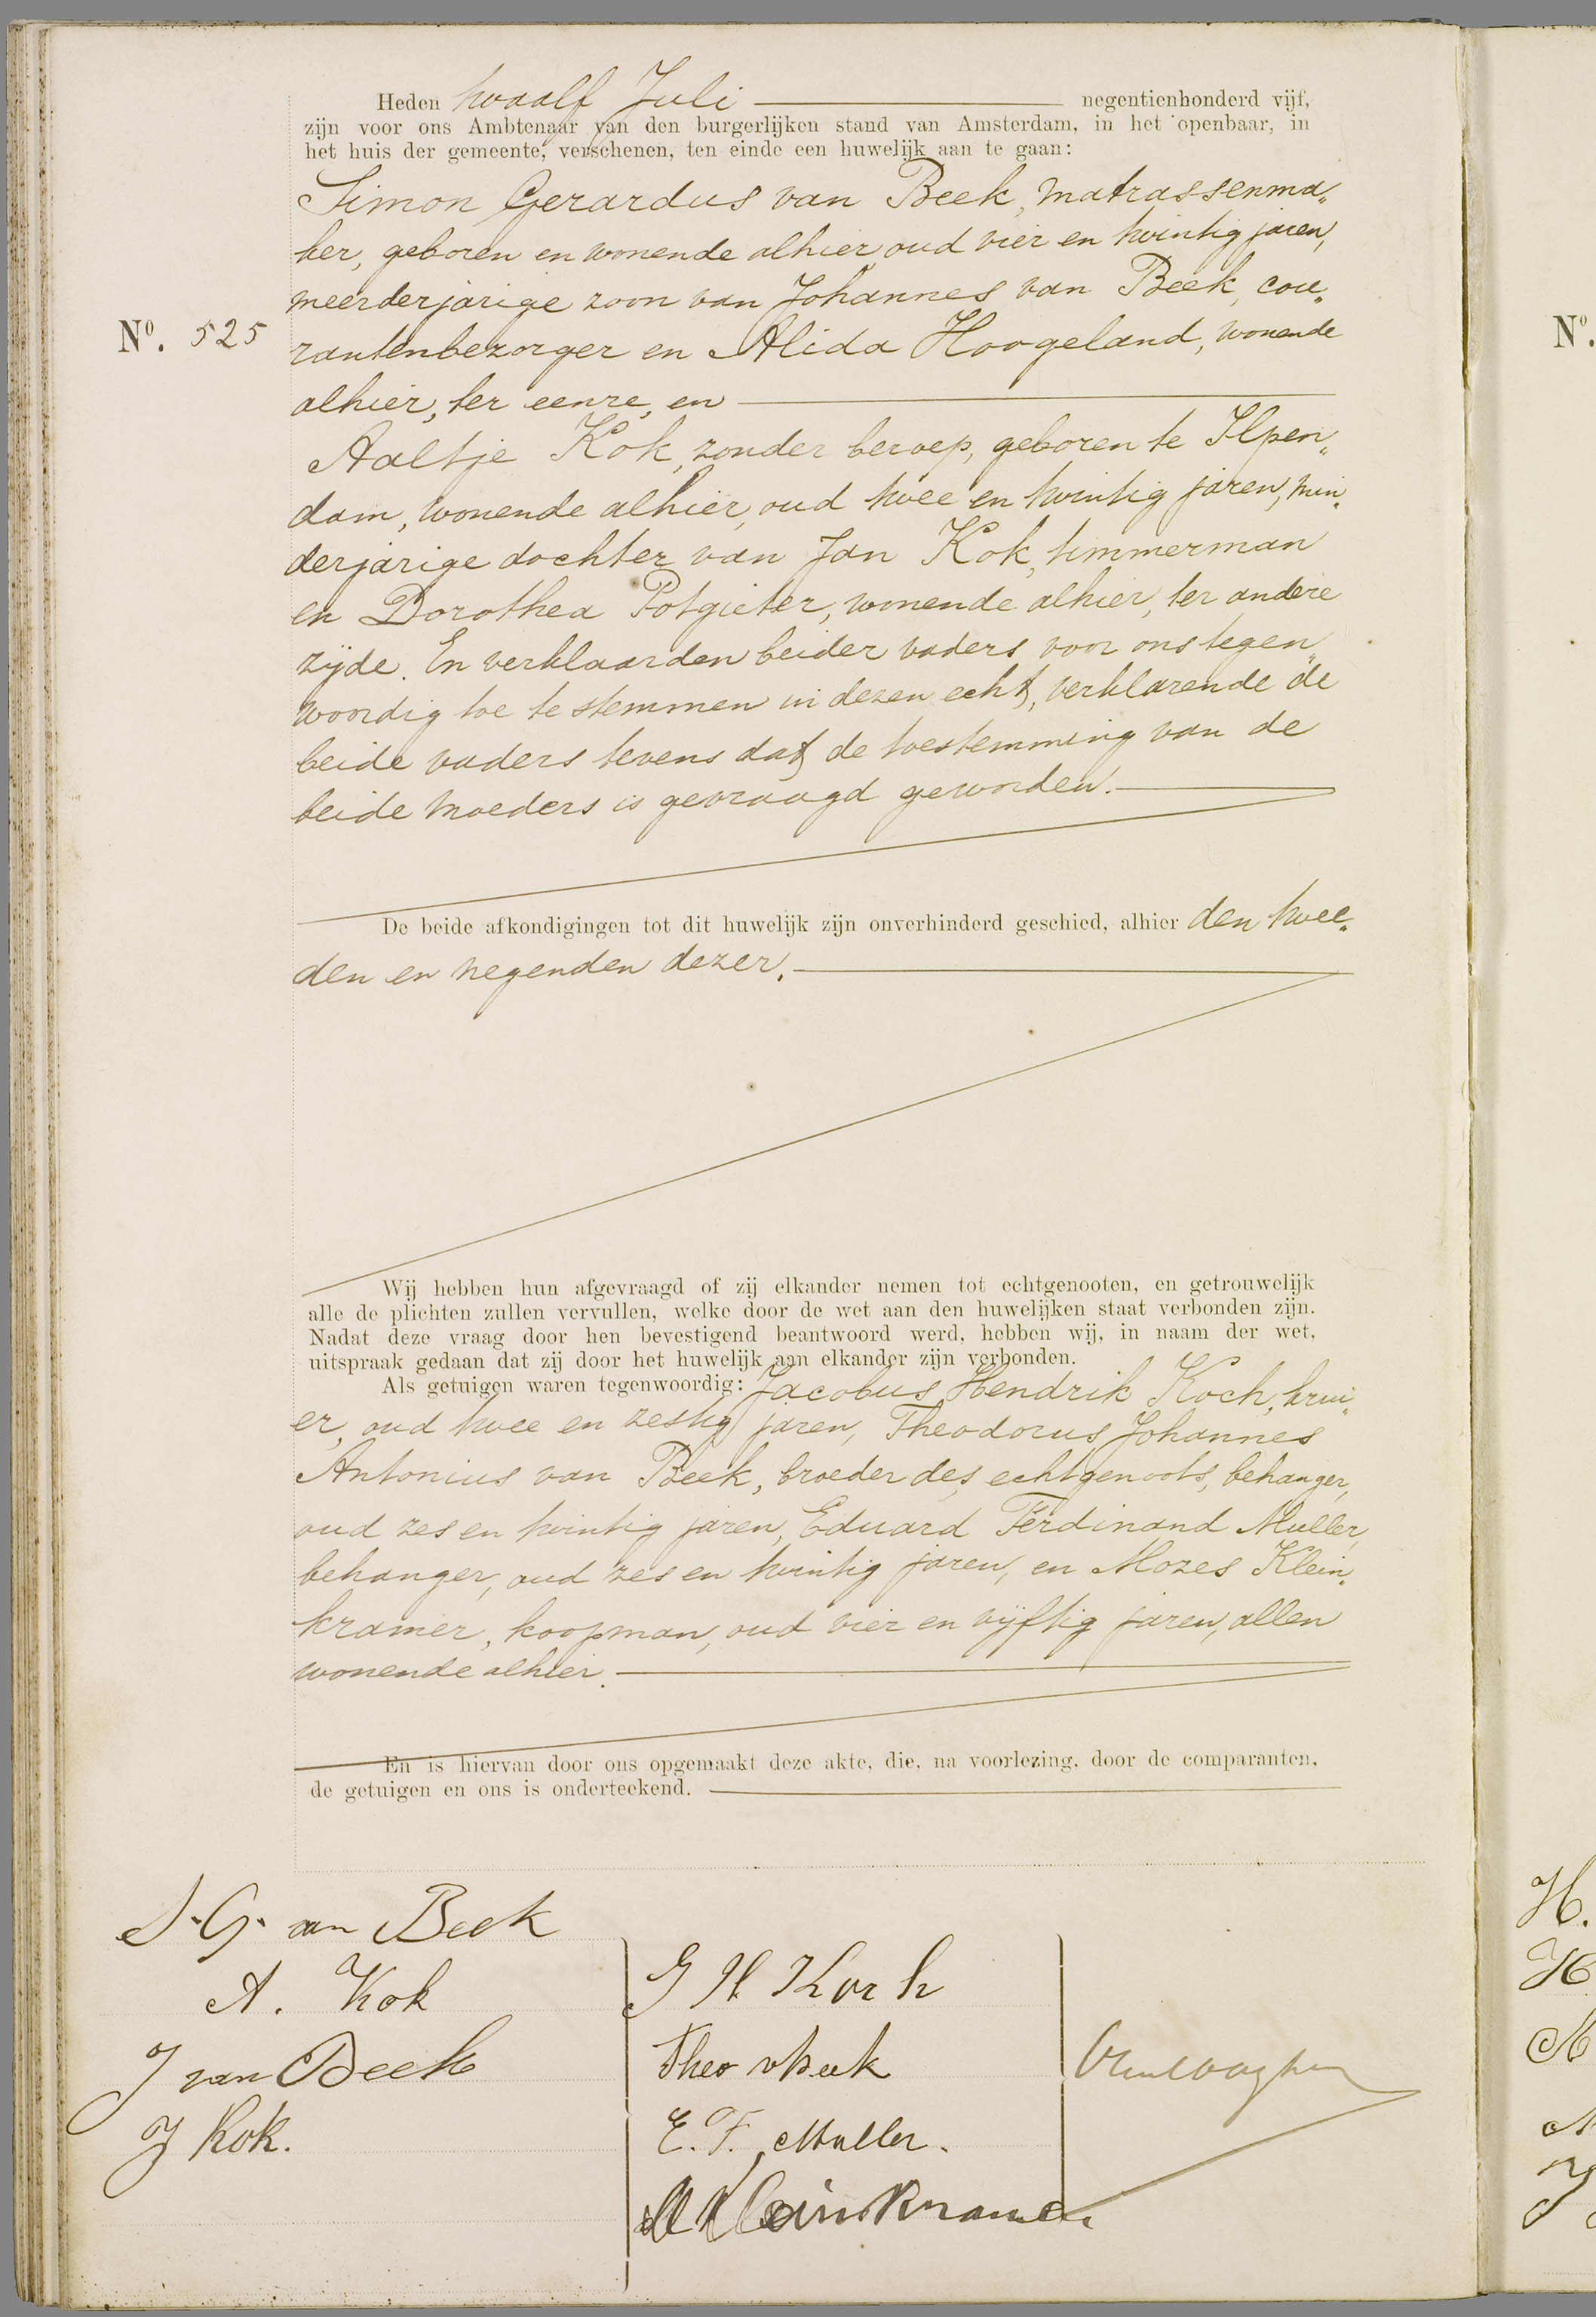 Heden twaalf Juli negentienhonderd vijf,
zijn voor ons Ambtenaar van den burgerlijken stand van Amsterdam, in het openbaar, in
het huis der gemeente, verschenen, ten einde een huwelijk aan te gaan:
Simon Gerardus van Beek, matrassenma„
ker, geboren en wonende alhier, oud vier en twintig jaren,
meerderjarige zoon van Johannes van Beek, cou„
Nº. 525 rantenbezorger en Alida Hoogeland, wonende
alhier, ter eenre, en
Aaltje Kok, zonder beroep, geboren te Ilpen„
dam, wonende alhier, oud twee en twintig jaren, min„
derjarige dochter van Jan Kok, timmerman
en Dorothea Potgieter, wonende alhier, ter andere
zijde. En verklaarden beider vaders voor ons tegen„
woordig toe te stemmen in dezen echt, verklarende de
beide vaders tevens dat de toestemming van de
beide moeders is gevraagd geworden.
De beide afkondigingen tot dit huwelijk zijn onverhinderd geschied, alhier den twee„
den en negenden dezer.
Wij hebben hun afgevraagd of zij elkander nemen tot echtgenooten, en getrouwelijk
alle de plichten zullen vervullen, welke door de wet aan den huwelijken staat verbonden zijn.
Nadat deze vraag door hen bevestigend beantwoord werd, hebben wij, in naam der wet,
uitspraak gedaan dat zij door het huwelijk aan elkander zijn verbonden.
Als getuigen waren tegenwoordig: Jacobus Hendrik Koch, krui„
er, oud twee en zestig jaren, Theodorus Johannes
Antonius van Beek, broeder des echtgenoots, behanger,
oud zes en twintig jaren, Eduard Ferdinand Muller,
behanger, oud zes en twintig jaren, en Mozes Klein„
kramer, koopman, oud vier en vijftig jaren, allen
wonende alhier.
En is hiervan door ons opgemaakt deze akte, die, na voorlezing, door de comparanten,
de getuigen en ons is onderteekend.
S. G. van Beek
A. Kok
J van Beek
J Kok.
J H Koch
Theo v Beek
E. F. Muller.
M Kleinkramer
Nº.
H.
H
M
J